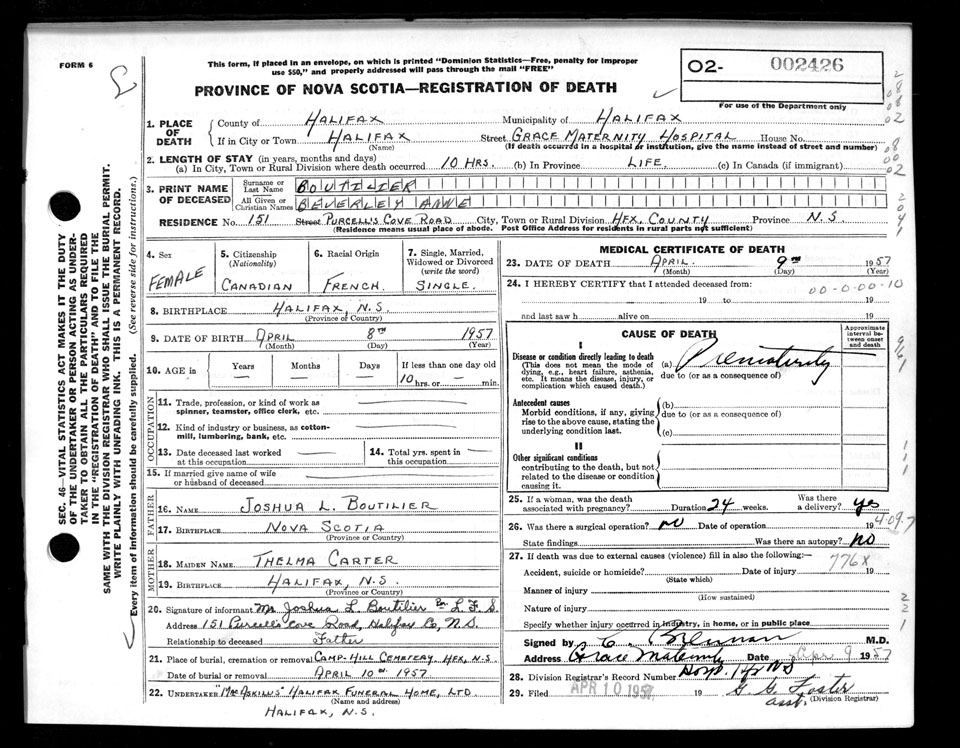 FORM 6
This form, if placed in an envelope, on which is printed "Dominion Statistics—Free, penalty for improper
use $50," and properly addressed will pass through the mail "FREE"
PROVINCE OF NOVA SCOTIA—REGISTRATION OF DEATH
O2- 002426
For use of the Department only
SEC. 46—VITAL STATISTICS ACT MAKES IT THE DUTY
OF THE UNDERTAKER OR PERSON ACTING AS UNDER-
TAKER TO OBTAIN ALL THE PARTICULARS REQUIRED
IN THE "REGISTRATION OF DEATH" AND TO FILE THE
SAME WITH THE DIVISION REGISTRAR WHO SHALL ISSUE THE BURIAL PERMIT.
WRITE PLAINLY WITH UNFADING INK. THIS IS A PERMANENT RECORD.
Every item of information should be carefully supplied. (See reverse side for instructions.)
1. PLACE OF DEATH
County of HALIFAX Municipality of HALIFAX
If in City or Town HALIFAX Street GRACE MATERNITY HOSPITAL House No.
(Name) (If death occurred in a hospital or institution, give the name instead of street and number)
2. LENGTH OF STAY (in years, months and days)
(a) In City, Town or Rural Division where death occurred 10 HRS. (b) In Province LIFE. (c) In Canada (if immigrant)
3. PRINT NAME OF DECEASED
Surname or Last Name BOUTILIER
All Given or Christian Names BEVERLEY ANNE
RESIDENCE No. 151 Street PURCELL'S COVE ROAD City, Town or Rural Division HFX. COUNTY Province N.S.
(Residence means usual place of abode. Post Office Address for residents in rural parts not sufficient)
4. Sex FEMALE
5. Citizenship (Nationality) CANADIAN
6. Racial Origin FRENCH.
7. Single, Married, Widowed or Divorced (write the word) SINGLE.
8. BIRTHPLACE HALIFAX, N.S.
(Province or Country)
9. DATE OF BIRTH APRIL 8TH 1957
(Month) (Day) (Year)
10. AGE in Years Months Days If less than one day old
10 hrs. or — min.
OCCUPATION
11. Trade, profession, or kind of work as
spinner, teamster, office clerk, etc.
12. Kind of industry or business, as cotton-
mill, lumbering, bank, etc.
13. Date deceased last worked
at this occupation
14. Total yrs. spent in
this occupation
15. If married give name of wife
or husband of deceased
FATHER
16. NAME JOSHUA L. BOUTILIER
17. BIRTHPLACE NOVA SCOTIA
(Province or Country)
MOTHER
18. MAIDEN NAME THELMA CARTER
19. BIRTHPLACE HALIFAX, N.S.
(Province or Country)
20. Signature of informant Mr Joshua L. Boutilier Per L.F.S.
Address 151 Purcell's Cove Road, Halifax Co, N.S.
Relationship to deceased Father
21. Place of burial, cremation or removal CAMP-HILL CEMETERY. HFX, N.S.
Date of burial or removal APRIL 10TH 1957
22. UNDERTAKER "MACASKILLS" HALIFAX FUNERAL HOME, LTD.
(Name and address)
HALIFAX, N.S.
MEDICAL CERTIFICATE OF DEATH
23. DATE OF DEATH APRIL 9TH 1957
(Month) (Day) (Year)
24. I HEREBY CERTIFY that I attended deceased from:
00-0-00-10
19 to 19
and last saw h alive on 19
CAUSE OF DEATH
Approximate interval between onset and death
I
Disease or condition directly leading to death
(This does not mean the mode of
dying, e.g., heart failure, asthenia,
etc. It means the disease, injury, or
complication which caused death.)
(a) Prematurity
due to (or as a consequence of)
Antecedent causes
Morbid conditions, if any, giving
rise to the above cause, stating the
underlying condition last.
(b)
due to (or as a consequence of)
(c)
II
Other significant conditions
contributing to the death, but not
related to the disease or condition
causing it.
25. If a woman, was the death
associated with pregnancy? Duration 24 weeks. Was there
a delivery? yes
26. Was there a surgical operation? no Date of operation 19
State findings Was there an autopsy? no
27. If death was due to external causes (violence) fill in also the following:—
776x
Accident, suicide or homicide? Date of injury 19
(State which)
Manner of injury
(How sustained)
Nature of injury
Specify whether injury occurred in industry, in home, or in public place
Signed by M.D.
Address Grace Maternity Date Apr 9 1957
Hosp. Hfx NS
28. Division Registrar's Record Number
29. Filed APR 10 1957 19 Foster
asst. (Division Registrar)